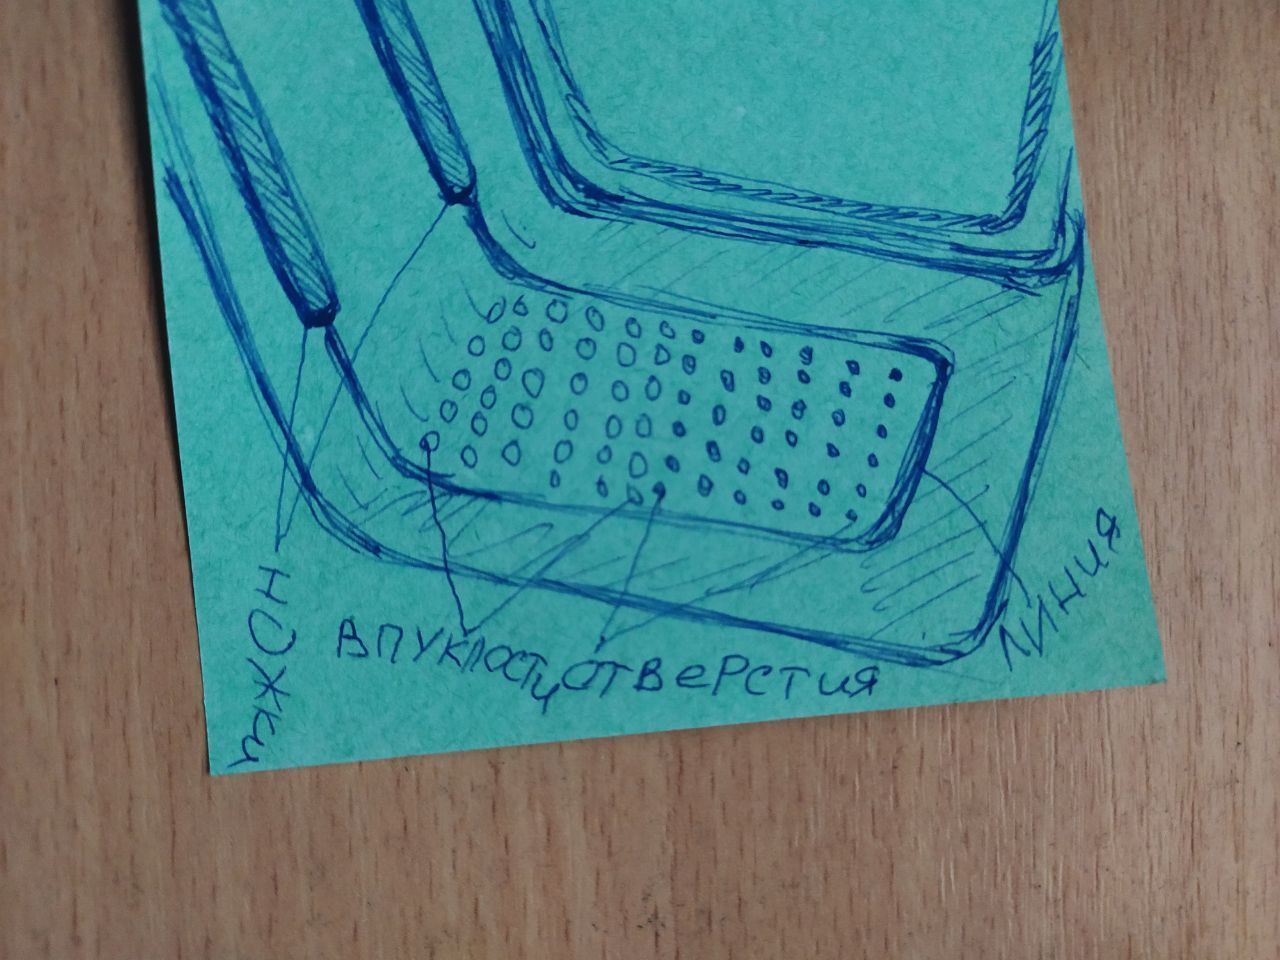 НОЖКИ
ВПУКЛОСТИ
ОТВЕРСТИЯ
ЛИНИЯ